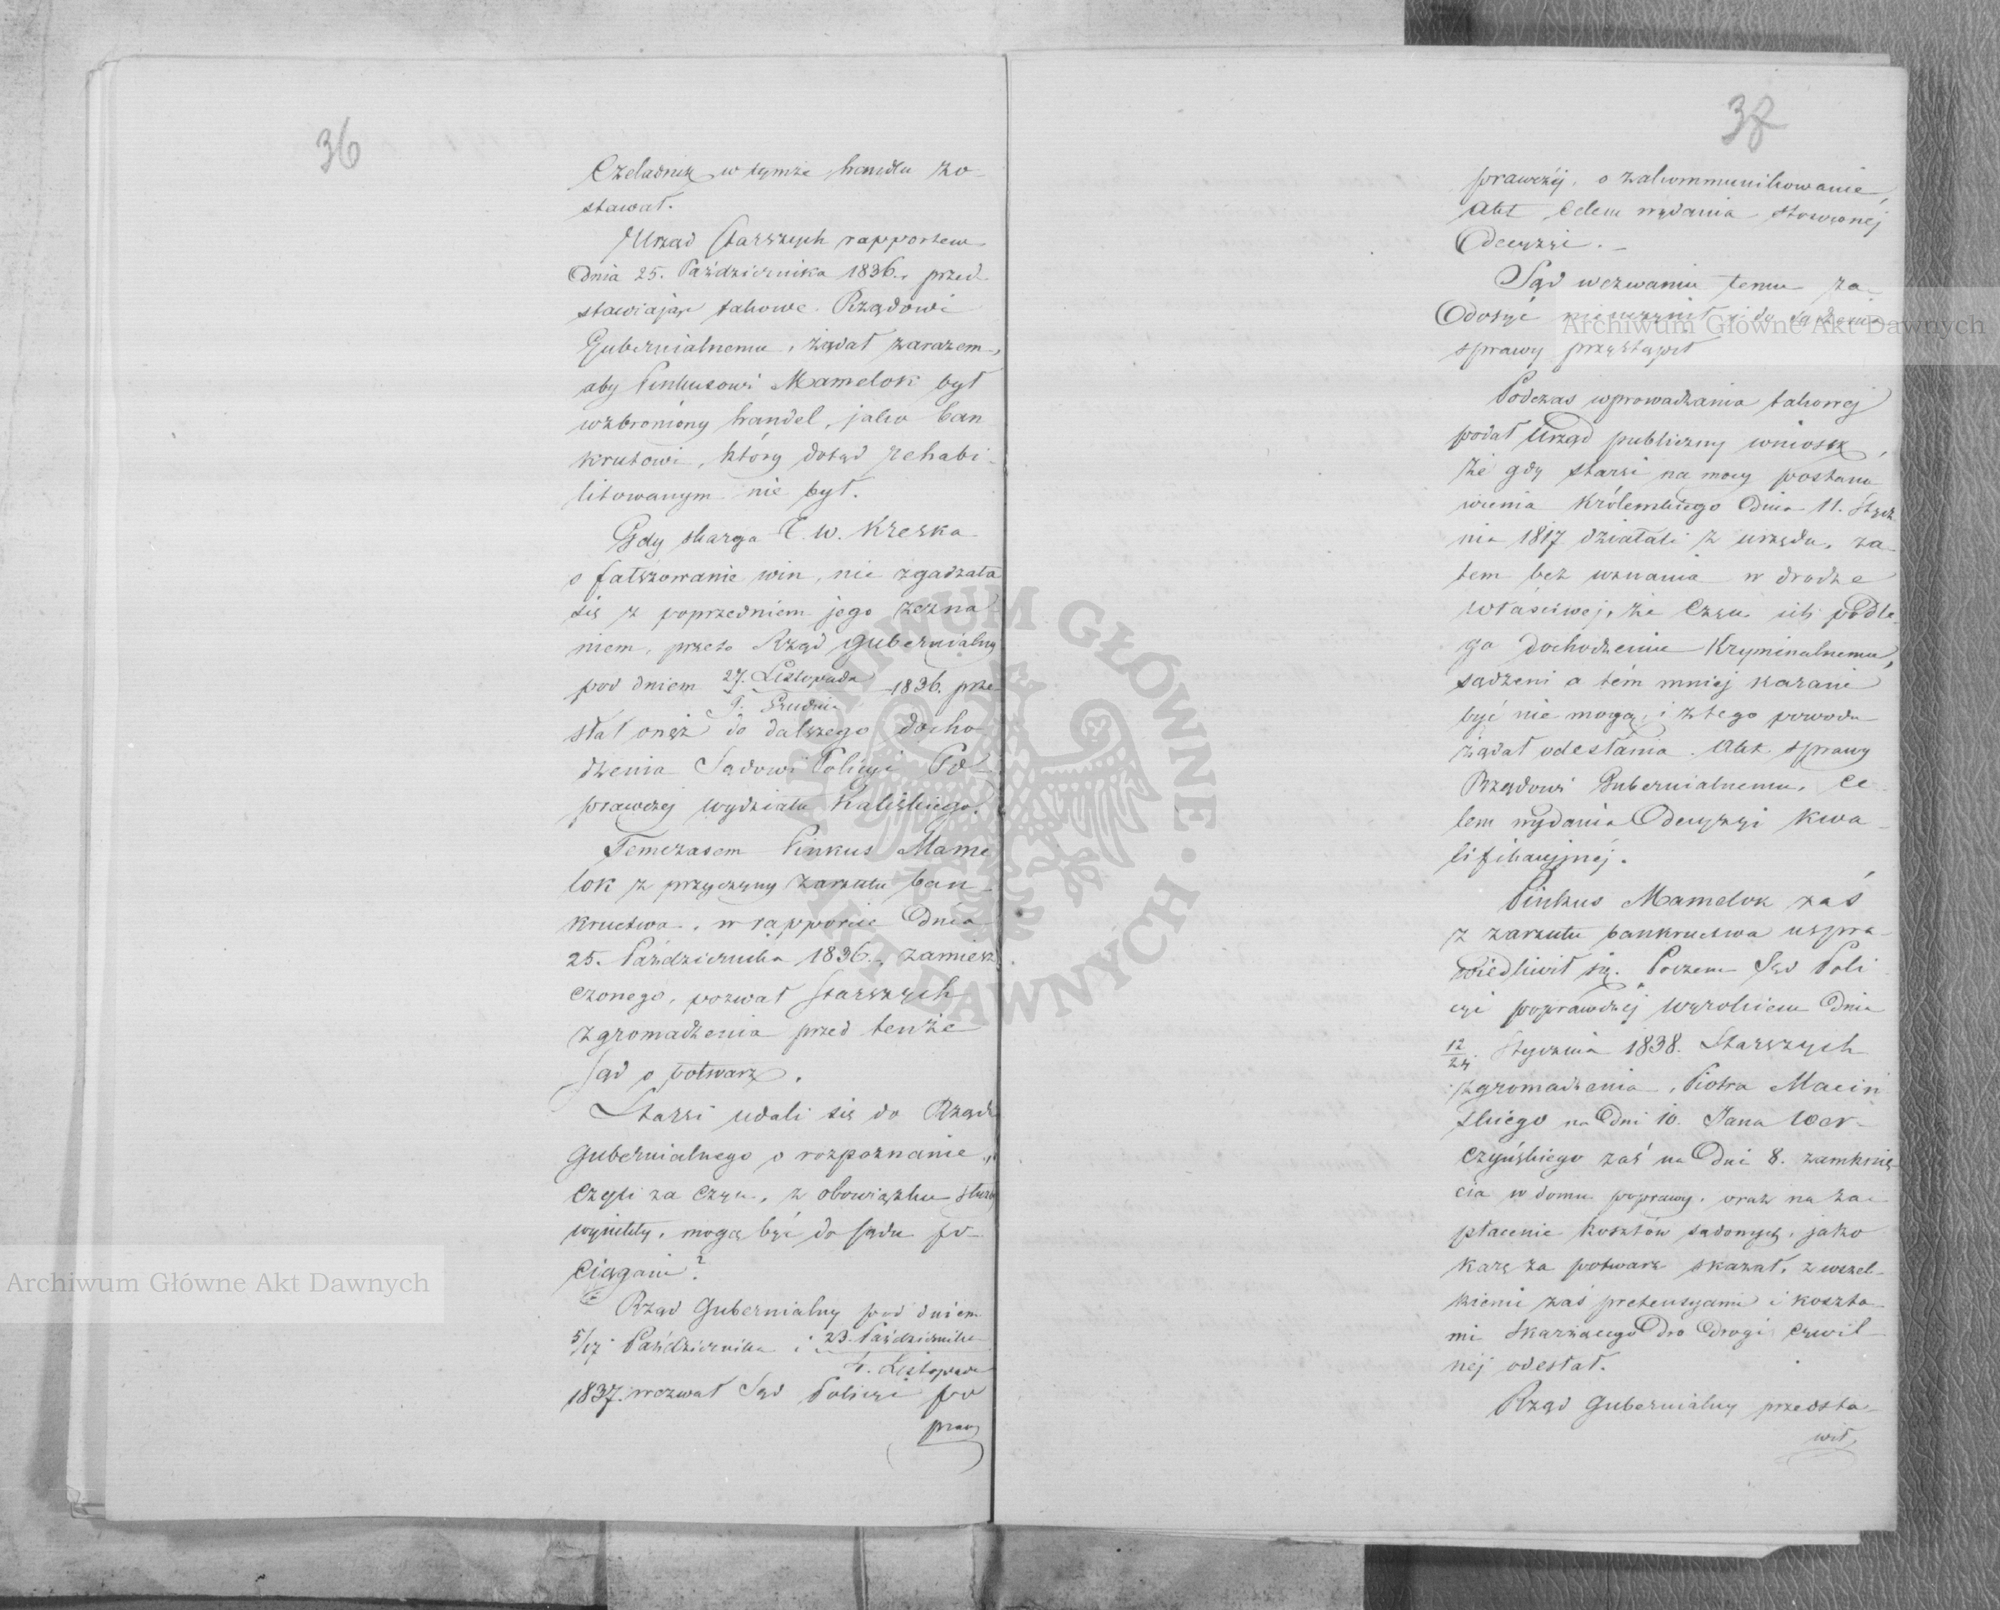 36
Czeladnik w tymże handlu zo-
stawał.
Urząd Starszych rapportem
Dnia 25. Października 1836. przed-
stawiając takowe Rządowi
Gubernialnemu, żądał zarazem,
aby Pinkusowi Mamelok był
wzbroniony handel, jako ban
krutowi, który dotąd rehabi-
litowanym nie był.
Gdy skarga T. W. Kreska
o fałszowanie win, nie zgadzała
się z poprzedniem jego zezna
niem, przeto Rząd Gubernialny
pod dniem 27. Listopada / 9. Grudnia 1836. prze
słał onęż do dalszego docho
dzenia Sądowi Policyi Po-
prawczej wydziału Kaliskiego.
Temczasem Pinkus Mame
lok z przyczyny zarzutu ban-
kructwa, w rapporcie Dnia
25. Października 1836. zamiesz
czonego, pozwał Starszych
zgromadzenia przed tenże
Sąd o potwarz.
Starsi udali się do Rządu
Gubernialnego o rozpoznanie,
czyli za czyn, z obowiązku służby
wynikły, mogą być do sądu po-
ciągani?
Rząd Gubernialny pod dniem
5/17 Października i 23. Października / 4. Listopada
1837. wezwał Sąd Policyi po
praw
37
prawczej, o zakommunikowanie
Akt celem wydania stosownej
Decyzyi.
Sąd wezwaniu temu za-
dosyć nieuczynił i do sądzenia
sprawy przystąpił
Podczas wprowadzania takowej
podał Urząd publiczny wniosek,
że gdy starsi na mocy postano
wienia Królewskiego Dnia 11. Stycz
nia 1817 działali z urzędu, za-
tem bez uznania w drodze
właściwej, że czyn ich podle-
ga dochodzeniu Kryminalnemu,
sądzeni a tém mniej karani
być nie mogą, i z tego powodu
żądał odesłania Akt sprawy
Rządowi Gubernialnemu, ce-
lem wydania Decyzyi kwa-
lifikacyjnej.
Pinkus Mamelok zaś
z zarzutu bankructwa uspra-
wiedliwił się. Poczem Sąd Poli
cyi poprawczej wyrokiem Dnia
12/24. Stycznia 1838. Starszych
zgromadzenia, Piotra Maciń
skiego na Dni 10. Jana Wer-
czyńskiego zaś na Dni 8. zamknię
cia w domu poprawy, oraz na za-
płacenie kosztów sądowych, jako
karę za potwarz skazał, z wszel-
kiemi zaś pretensyami i koszta-
mi skarżącego do drogi cywil-
nej odesłał.
Rząd Gubernialny przedsta-
wił,
Archiwum Główne Akt Dawnych
Archiwum Główne Akt Dawnych
ARCHIWUM GŁÓWNE AKT DAWNYCH